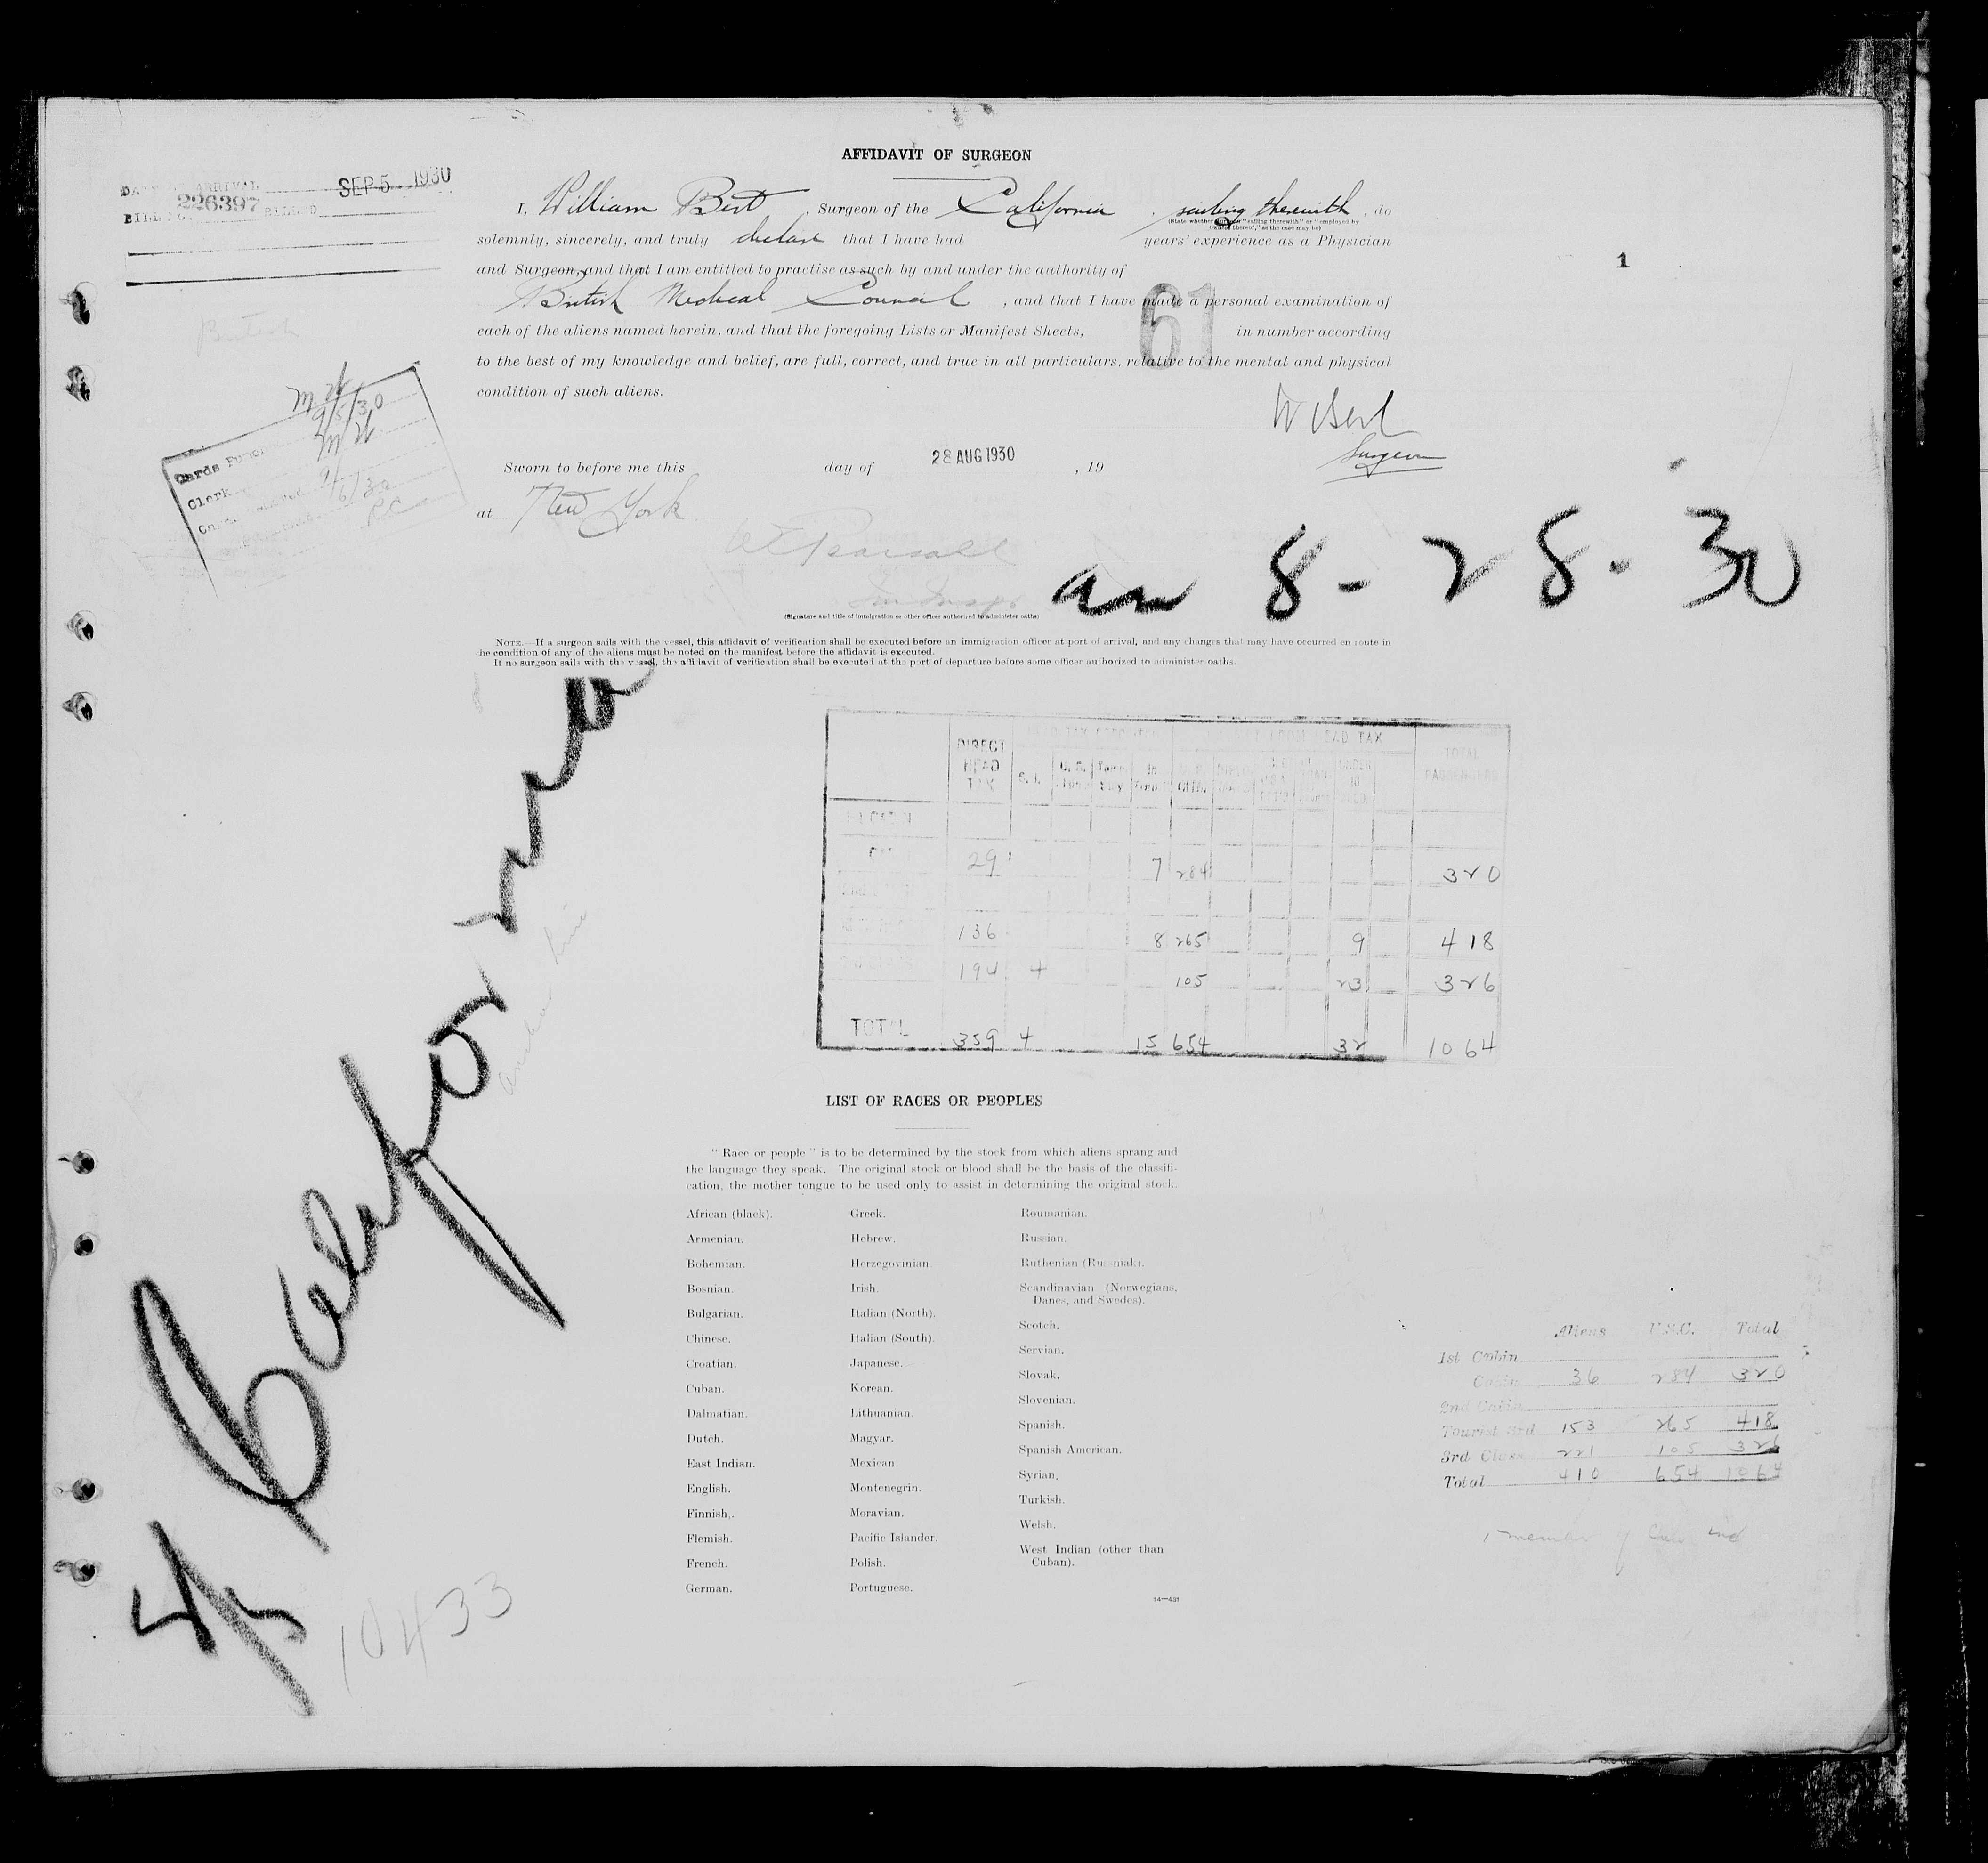 AFFIDAVIT OF SURGEON
SEP 5 1930
DATE OF ARRIVAL
226397
I, William Bert, Surgeon of the California, sailing therewith, do
(State whether "sailing therewith" or "employed by owners thereof," as the case may be)
solemnly, sincerely, and truly declare that I have had years' experience as a Physician
and Surgeon, and that I am entitled to practise as such by and under the authority of
British Medical Council, and that I have made a personal examination of
each of the aliens named herein, and that the foregoing Lists or Manifest Sheets, 61 in number according
to the best of my knowledge and belief, are full, correct, and true in all particulars, relative to the mental and physical
condition of such aliens.
1
British
W Bert
Surgeon
Cards Punch
9/5/30
Clerk
9/6/30
Sworn to before me this day of 28 AUG 1930, 19
at New York
(Signature and title of immigration or other officer authorized to administer oaths)
8-28-30
NOTE.—If a surgeon sails with the vessel, this affidavit of verification shall be executed before an immigration officer at port of arrival, and any changes that may have occurred en route in
the condition of any of the aliens must be noted on the manifest before the affidavit is executed.
If no surgeon sails with the vessel, the affidavit of verification shall be executed at the port of departure before some officer authorized to administer oaths.
DIRECT HEAD TAX
HEAD TAX
TOTAL PASSENGERS
29 7 284 320
136 8 265 9 418
194 4 105 23 326
TOTAL 359 4 15 654 32 1064
California
Anchor Line
10433
LIST OF RACES OR PEOPLES
"Race or people" is to be determined by the stock from which aliens sprang and
the language they speak. The original stock or blood shall be the basis of the classifi-
cation, the mother tongue to be used only to assist in determining the original stock.
African (black).
Armenian.
Bohemian.
Bosnian.
Bulgarian.
Chinese.
Croatian.
Cuban.
Dalmatian.
Dutch.
East Indian.
English.
Finnish.
Flemish.
French.
German.
Greek.
Hebrew.
Herzegovinian.
Irish.
Italian (North).
Italian (South).
Japanese.
Korean.
Lithuanian.
Magyar.
Mexican.
Montenegrin.
Moravian.
Pacific Islander.
Polish.
Portuguese.
Roumanian.
Russian.
Ruthenian (Russniak).
Scandinavian (Norwegians,
Danes, and Swedes).
Scotch.
Servian.
Slovak.
Slovenian.
Spanish.
Spanish American.
Syrian.
Turkish.
Welsh.
West Indian (other than
Cuban).
14—431
Aliens U.S.C. Total
1st Cabin
Cabin 36 284 320
2nd Cabin
Tourist 3rd 153 265 418
3rd Class 221 105 326
Total 410 654 1064